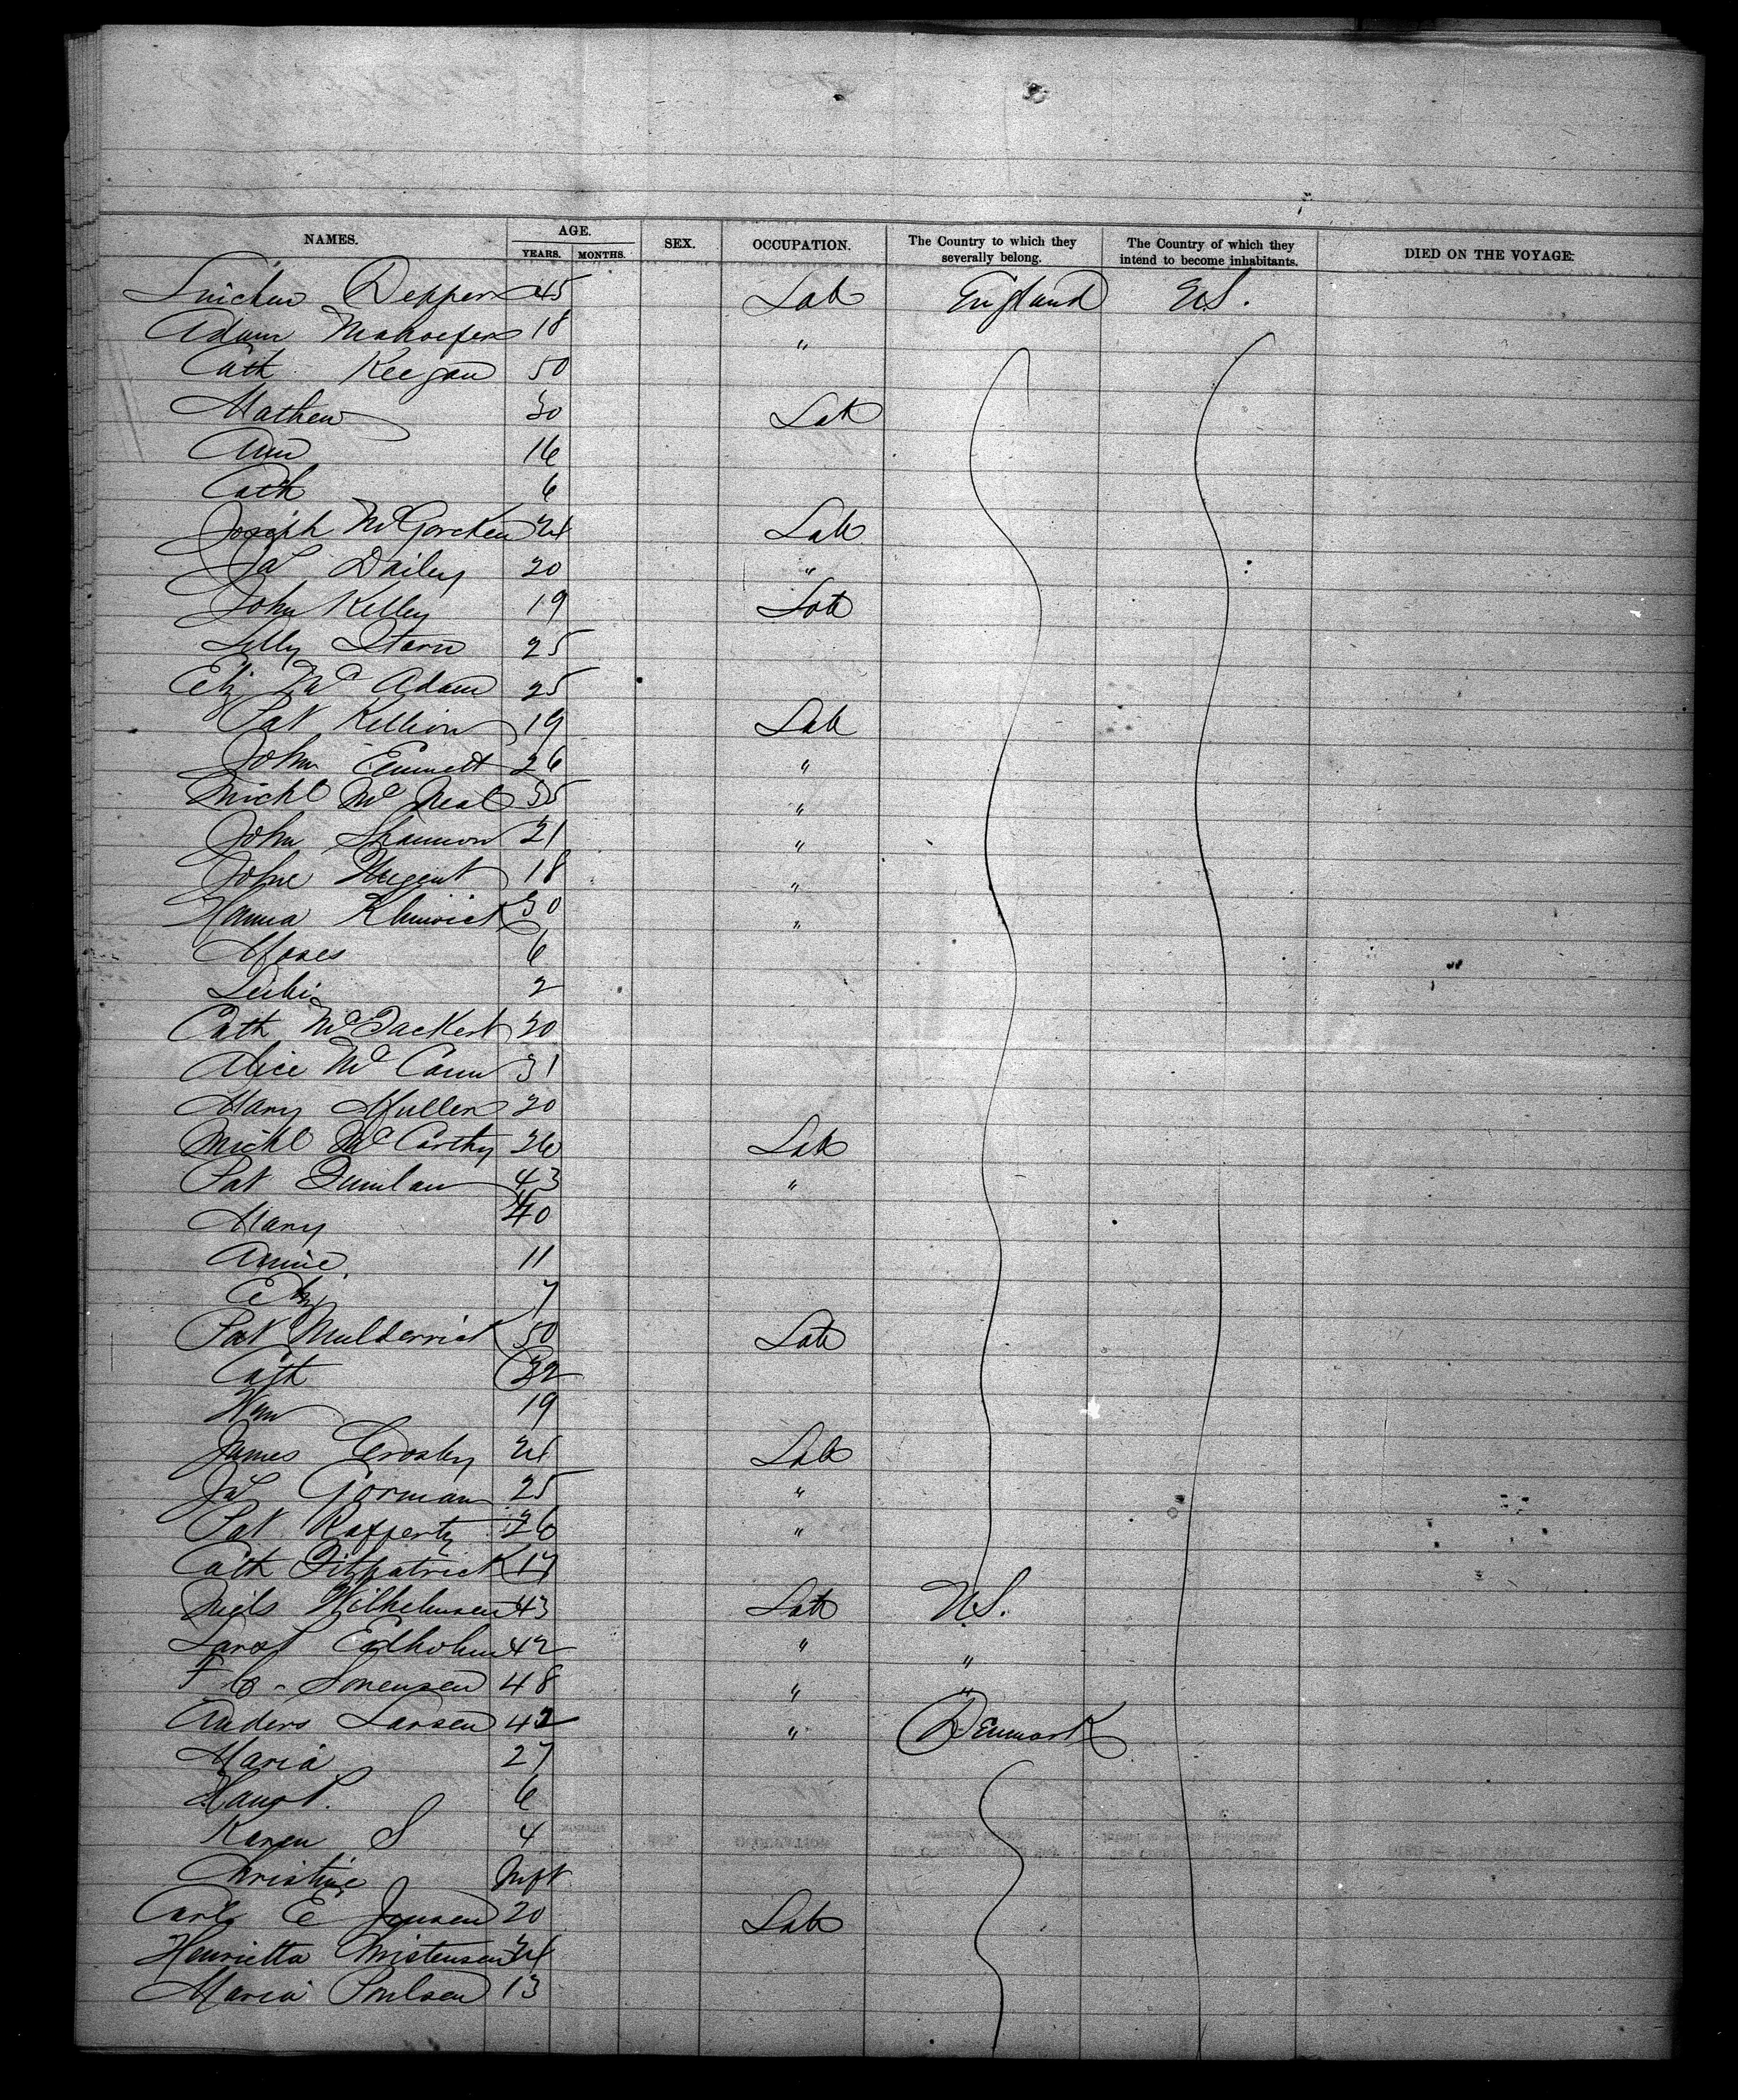 NAMES. AGE. SEX. OCCUPATION. The Country to which they severally belong. The Country of which they intend to become inhabitants. DIED ON THE VOYAGE.
YEARS. MONTHS.
45 Lab England U.S.
Adam 18 "
Cath Keegan 50
Mathew 30 Lab
Ann 16
Cath 6
Joseph 24 Lab
Jas Dailey 20 "
John Kelley 19 Lab
Lilly Stern 25
Eliz Mc Adam 25
Pat Killion 19 Lab
John Emmett 26 "
Michl Mc Neal 35 "
John Shannon 21 "
John Nugent 18 "
Hanna 30 "
Moses 6
2
Cath 20
Alice Mc Cann 31
Mary Mullen 20
Michl Mc Carthy 26 Lab
Pat Quinlan 43 "
Mary 40
Annie 11
Eliz 7
Pat Mulderrick 50 Lab
Cath 32
Wm 19
James Crosby 24 Lab
Jas Gorman 25 "
Pat Rafferty 26 "
Cath Fitzpatrick 17
Niels Wilhelmsen 43 Lab U.S.
Edholm 42 " "
Sorensen 48 " "
Anders Larsen 42 " Denmark
Maria 27
6
Karen S 4
Christine Inft
Carl E Jensen 20 Lab
Henrietta Christensen 24
Maria Poulsen 13